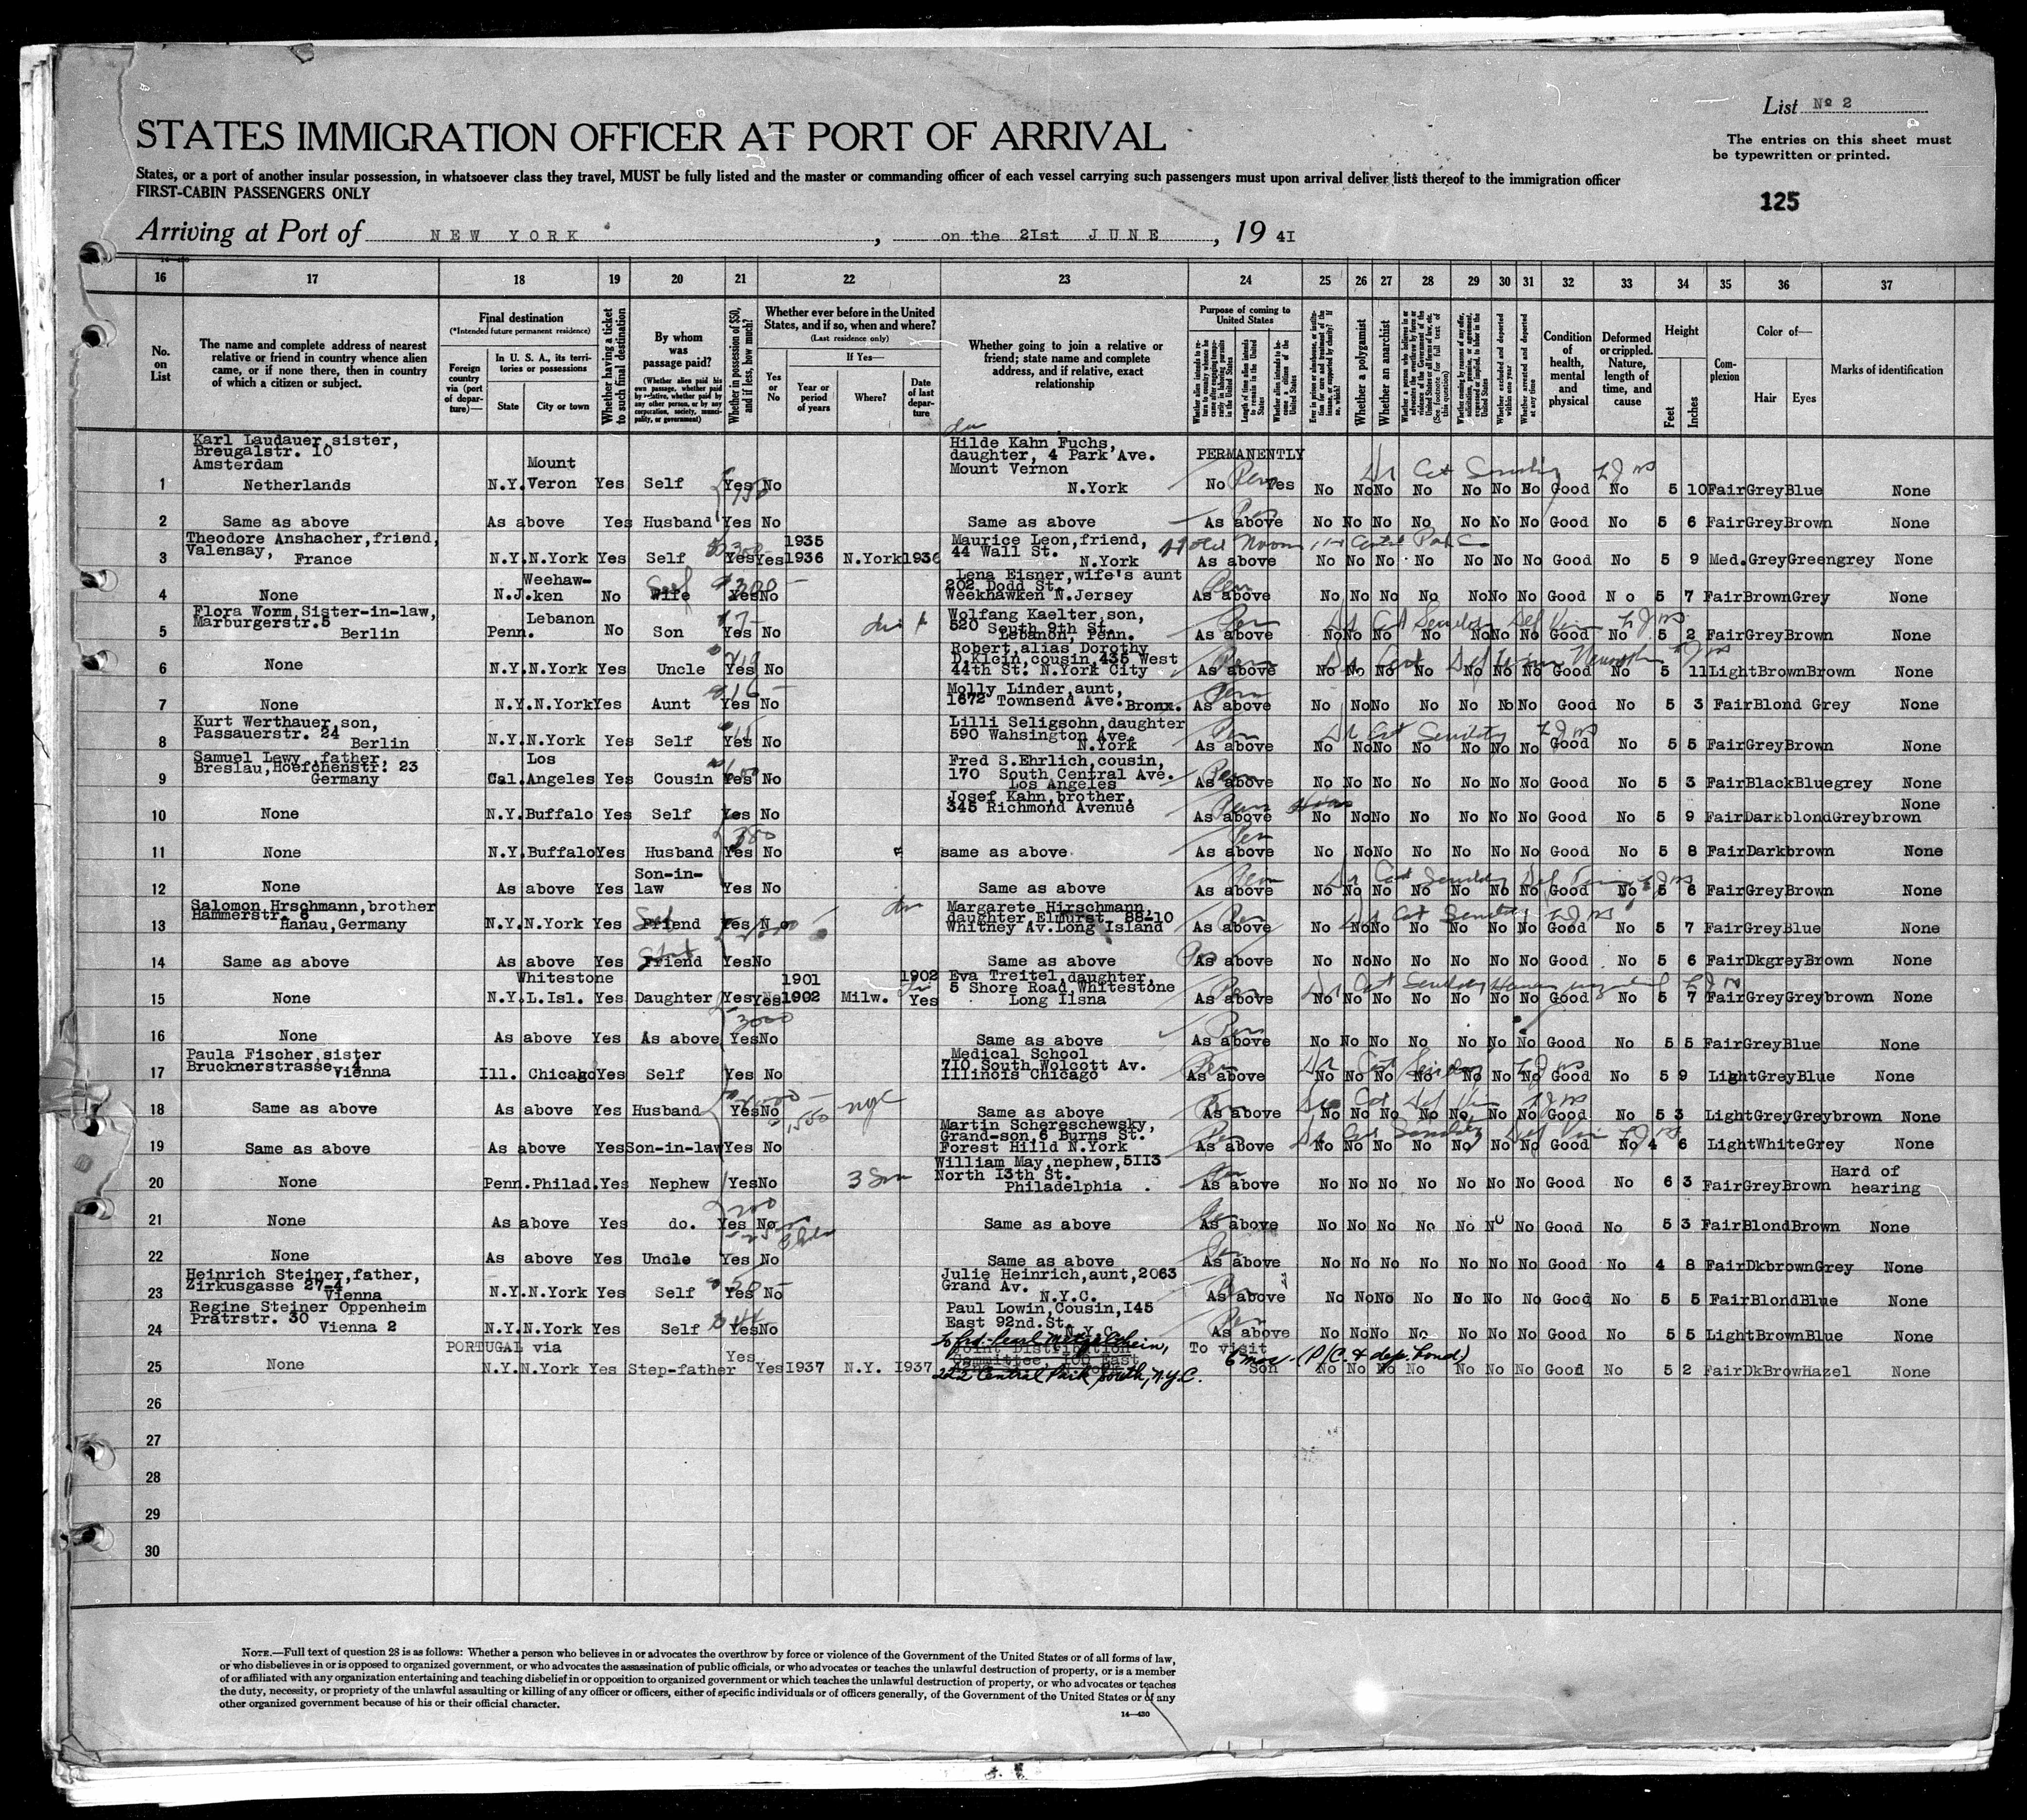 List No 2
STATES IMMIGRATION OFFICER AT PORT OF ARRIVAL
The entries on this sheet must
be typewritten or printed.
States, or a port of another insular possession, in whatsoever class they travel, MUST be fully listed and the master or commanding officer of each vessel carrying such passengers must upon arrival deliver lists thereof to the immigration officer
FIRST-CABIN PASSENGERS ONLY
125
Arriving at Port of NEW YORK , on the 21st JUNE , 19 41
16 17 18 19 20 21 22 23 24 25 26 27 28 29 30 31 32 33 34 35 36 37
No. on List
The name and complete address of nearest relative or friend in country whence alien came, or if none there, then in country of which a citizen or subject.
Final destination
(*Intended future permanent residence)
Foreign country via (port of departure)—
In U. S. A., its territories or possessions
State City or town
Whether having a ticket to such final destination
By whom was passage paid?
(Whether alien paid his own passage, whether paid by relative, whether paid by any other person, or by any corporation, society, municipality, or government)
Whether in possession of $50, and if less, how much?
Whether ever before in the United States, and if so, when and where?
(Last residence only)
Yes or No
If Yes—
Year or period of years
Where?
Date of last departure
Whether going to join a relative or friend; state name and complete address, and if relative, exact relationship
Purpose of coming to United States
Length of time alien intends to remain in the United States
Whether a polygamist
Whether an anarchist
Condition of health, mental and physical
Deformed or crippled. Nature, length of time, and cause
Height
Feet Inches
Complexion
Color of—
Hair Eyes
Marks of identification
1 Karl Laudauer, sister, Breugalstr. 10 Amsterdam Netherlands N.Y. Mount Veron Yes Self Yes No Hilde Kahn Fuchs, daughter, 4 Park Ave. Mount Vernon N.York PERMANENTLY No Yes No No No No No No No Good No 5 10 Fair Grey Blue None
2 Same as above As above Yes Husband Yes No Same as above As above No No No No No No No Good No 5 6 Fair Grey Brown None
3 Theodore Anshacher, friend, Valensay, France N.Y. N.York Yes Self Yes Yes 1935 1936 N.York 1936 Maurice Leon, friend, 44 Wall St. N.York As above No No No No No No No Good No 5 9 Med. Grey Greengrey None
4 None N.J. Weehaw-ken No Wife Yes No Lena Eisner, wife's aunt 202 Dodd St. Weekhawken N.Jersey As above No No No No No No No Good No 5 7 Fair Brown Grey None
5 Flora Worm, Sister-in-law, Marburgerstr. 5 Berlin Penn. Lebanon No Son Yes No Wolfang Kaelter, son, 520 South 8th St. Lebanon, Penn. As above No No No No No No No Good No 5 2 Fair Grey Brown None
6 None N.Y. N.York Yes Uncle Yes No Robert, alias Dorothy D.Klein, cousin, 435 West 44th St. N.York City As above No No No No No No No Good No 5 11 Light Brown Brown None
7 None N.Y. N.York Yes Aunt Yes No Molly Linder, aunt, 1672 Townsend Ave. Bronx. As above No No No No No No No Good No 5 3 Fair Blond Grey None
8 Kurt Werthauer, son, Passauerstr. 24 Berlin N.Y. N.York Yes Self Yes No Lilli Seligsohn, daughter 590 Wahsington Ave. N.York As above No No No No No No No Good No 5 5 Fair Grey Brown None
9 Samuel Lewy, father, Breslau, Hoefchenstr. 23 Germany Cal. Los Angeles Yes Cousin Yes No Fred S.Ehrlich, cousin, 170 South Central Ave. Los Angeles As above No No No No No No No Good No 5 3 Fair Black Bluegrey None
10 None N.Y. Buffalo Yes Self Yes No Josef Kahn, brother, 345 Richmond Avenue As above No No No No No No No Good No 5 9 Fair Darkblond Greybrown None
11 None N.Y. Buffalo Yes Husband Yes No same as above As above No No No No No No No Good No 5 8 Fair Darkbrown None
12 None As above Yes Son-in-law Yes No Same as above As above No No No No No No No Good No 5 6 Fair Grey Brown None
13 Salomon Hrschmann, brother Hammerstr. 6 Hanau, Germany N.Y. N.York Yes Friend Yes No Margarete Hirschmann, daughter Elmurst 88-10 Whitney Av. Long Island As above No No No No No No No Good No 5 7 Fair Grey Blue None
14 Same as above As above Yes Friend Yes No Same as above As above No No No No No No No Good No 5 6 Fair Dkgrey Brown None
15 None N.Y. Whitestone L.Isl. Yes Daughter Yes Yes 1901 1902 Milw. 1902 Yes Eva Treitel, daughter, 5 Shore Road, Whitestone Long Ilsna As above No No No No No No No Good No 5 7 Fair Grey Greybrown None
16 None As above Yes As above Yes No Same as above As above No No No No No No No Good No 5 5 Fair Grey Blue None
17 Paula Fischer, sister Brucknerstrasse 4 Vienna Ill. Chicago Yes Self Yes No Medical School 710 South Wolcott Av. Illinois Chicago As above No No No No No No No Good No 5 9 Light Grey Blue None
18 Same as above As above Yes Husband Yes No nyc Same as above As above No No No No No No No Good No 5 3 Light Grey Greybrown None
19 Same as above As above Yes Son-in-law Yes No Martin Schereschewsky, Grand-son, 6 Burns St. Forest Hilld N.York As above No No No No No No No Good No 4 6 Light White Grey None
20 None Penn. Philad. Yes Nephew Yes No William May, nephew, 5113 North 13th St. Philadelphia As above No No No No No No No Good No 6 3 Fair Grey Brown Hard of hearing
21 None As above Yes do. Yes No Same as above As above No No No No No No No Good No 5 3 Fair Blond Brown None
22 None As above Yes Uncle Yes No Same as above As above No No No No No No No Good No 4 8 Fair Dkbrown Grey None
23 Heinrich Steiner, father, Zirkusgasse 27-4 Vienna N.Y. N.York Yes Self Yes No Julie Heinrich, aunt, 2063 Grand Av. N.Y.C. As above No No No No No No No Good No 5 5 Fair Blond Blue None
24 Regine Steiner Oppenheim Pratrstr. 30 Vienna 2 N.Y. N.York Yes Self Yes No Paul Lowin, Cousin, 145 East 92nd. St. N.Y.C. As above No No No No No No No Good No 5 5 Light Brown Blue None
25 None PORTUGAL via N.Y. N.York Yes Step-father Yes Yes 1937 N.Y. 1937 Joint Distribution Committee, 100 East 222 Central Park South, N.Y.C. To visit 6 mos. (P/C. & dep. bond) Son No No No No No No No Good No 5 2 Fair DkBrow Hazel None
26
27
28
29
30
NOTE.—Full text of question 28 is as follows: Whether a person who believes in or advocates the overthrow by force or violence of the Government of the United States or of all forms of law,
or who disbelieves in or is opposed to organized government, or who advocates the assassination of public officials, or who advocates or teaches the unlawful destruction of property, or is a member
of or affiliated with any organization entertaining and teaching disbelief in or opposition to organized government or which teaches the unlawful destruction of property, or who advocates or teaches
the duty, necessity, or propriety of the unlawful assaulting or killing of any officer or officers, either of specific individuals or of officers generally, of the Government of the United States or of any
other organized government because of his or their official character.
14—430